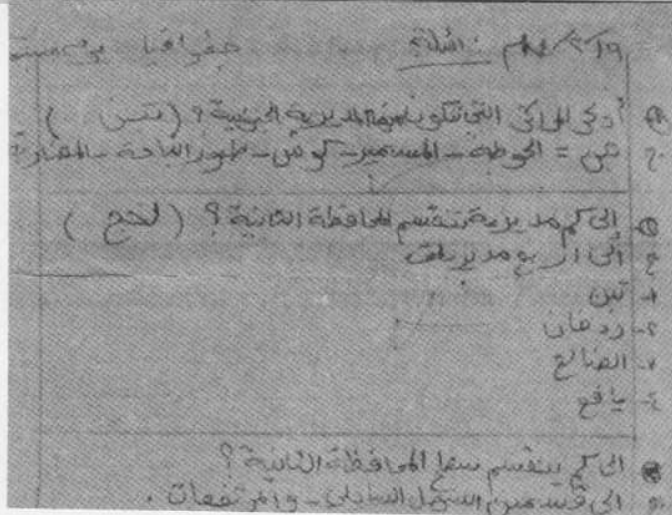 أسئلة جغرافيا
أذكر المراكز التي تتكون منها المديرية الجنوبية؟ ( تبن )
ج = الحوطة - المسيمير - كرش - طور الباحة - المضاربة
إلى كم مديرية تنقسم المحافظة الثانية؟ ( لحج )
ج إلى اربع مديريات
١- تبن
٢- ردفان
٣- الضالع
٤- يافع
الى كم ينقسم سطح المحافظة الثانية؟
ج الى قسمين السهل الساحلي - والمرتفعات .